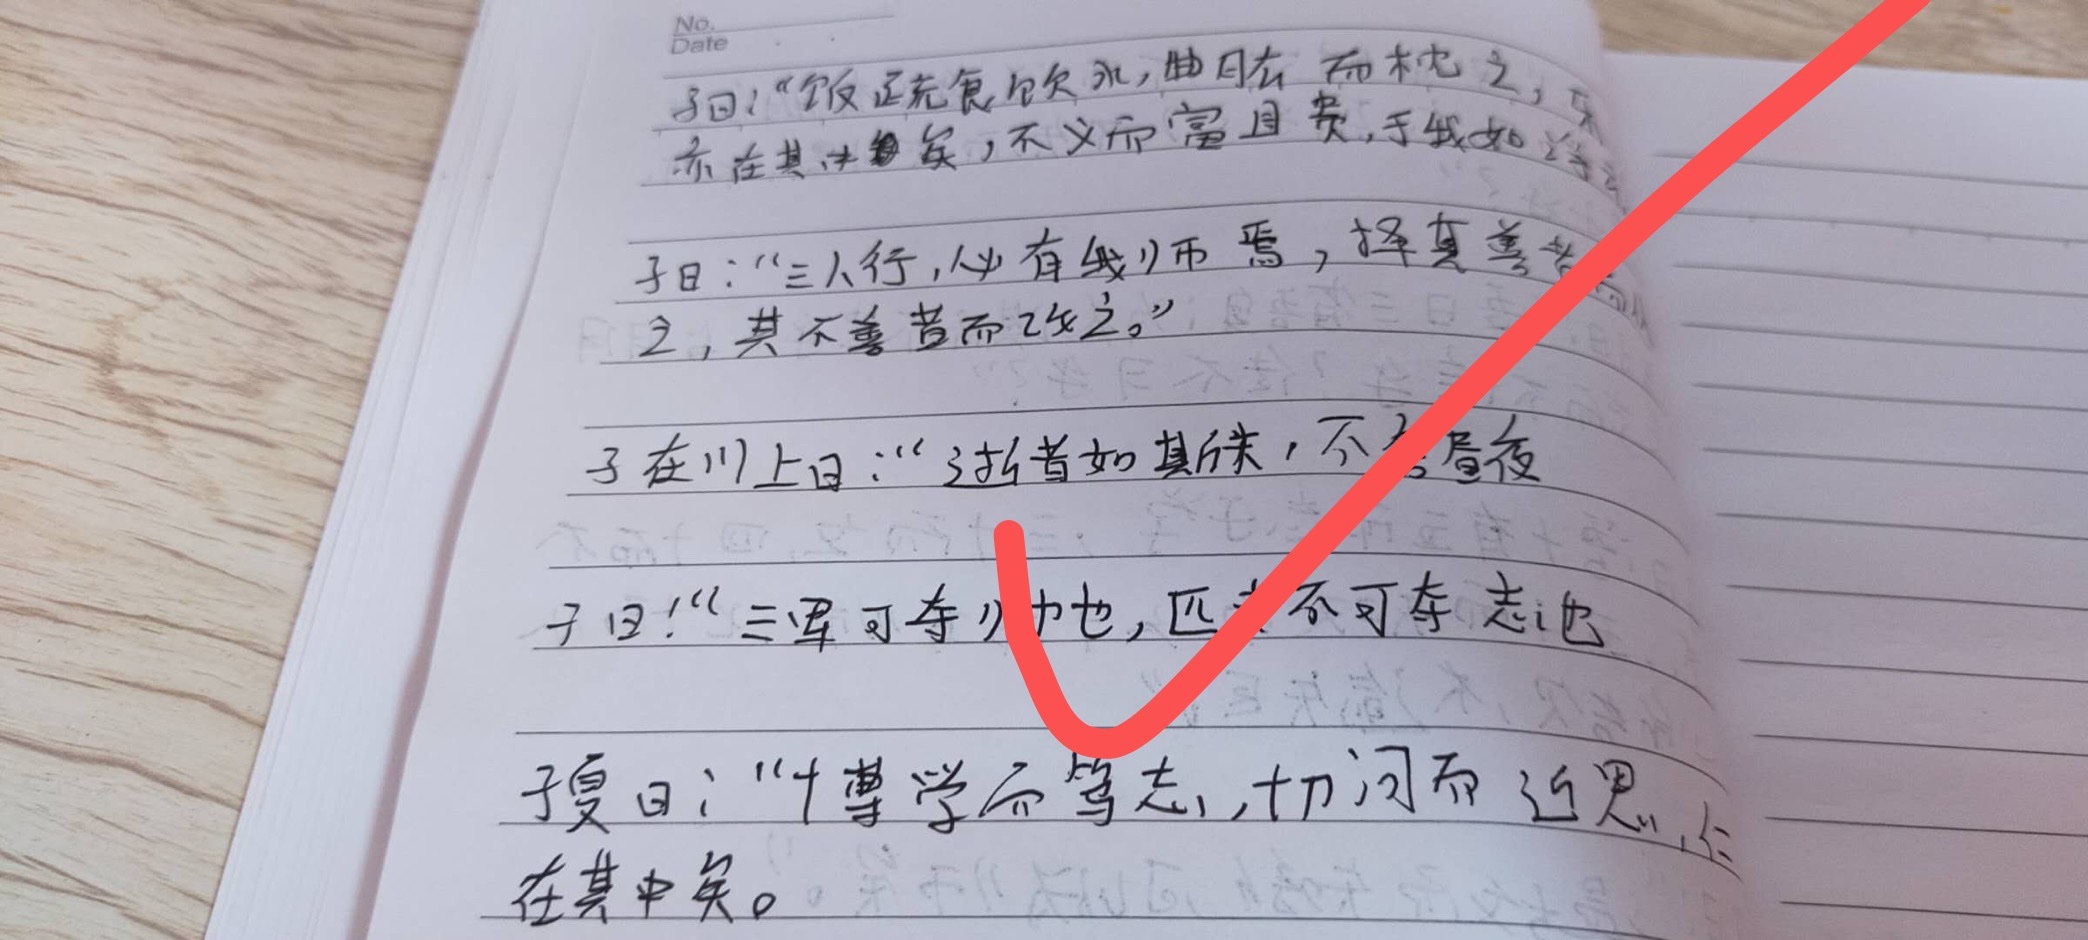 No.
Date
子曰："饭疏食饮水，曲肱而枕之，乐
亦在其中矣，不义而富且贵，于我如浮云
子曰："三人行，必有我师焉，择其善者而从
之，其不善者而改之。"
子在川上曰："逝者如斯夫，不舍昼夜
子曰："三军可夺帅也，匹夫不可夺志也
子夏曰："博学而笃志，切问而近思，仁
在其中矣。